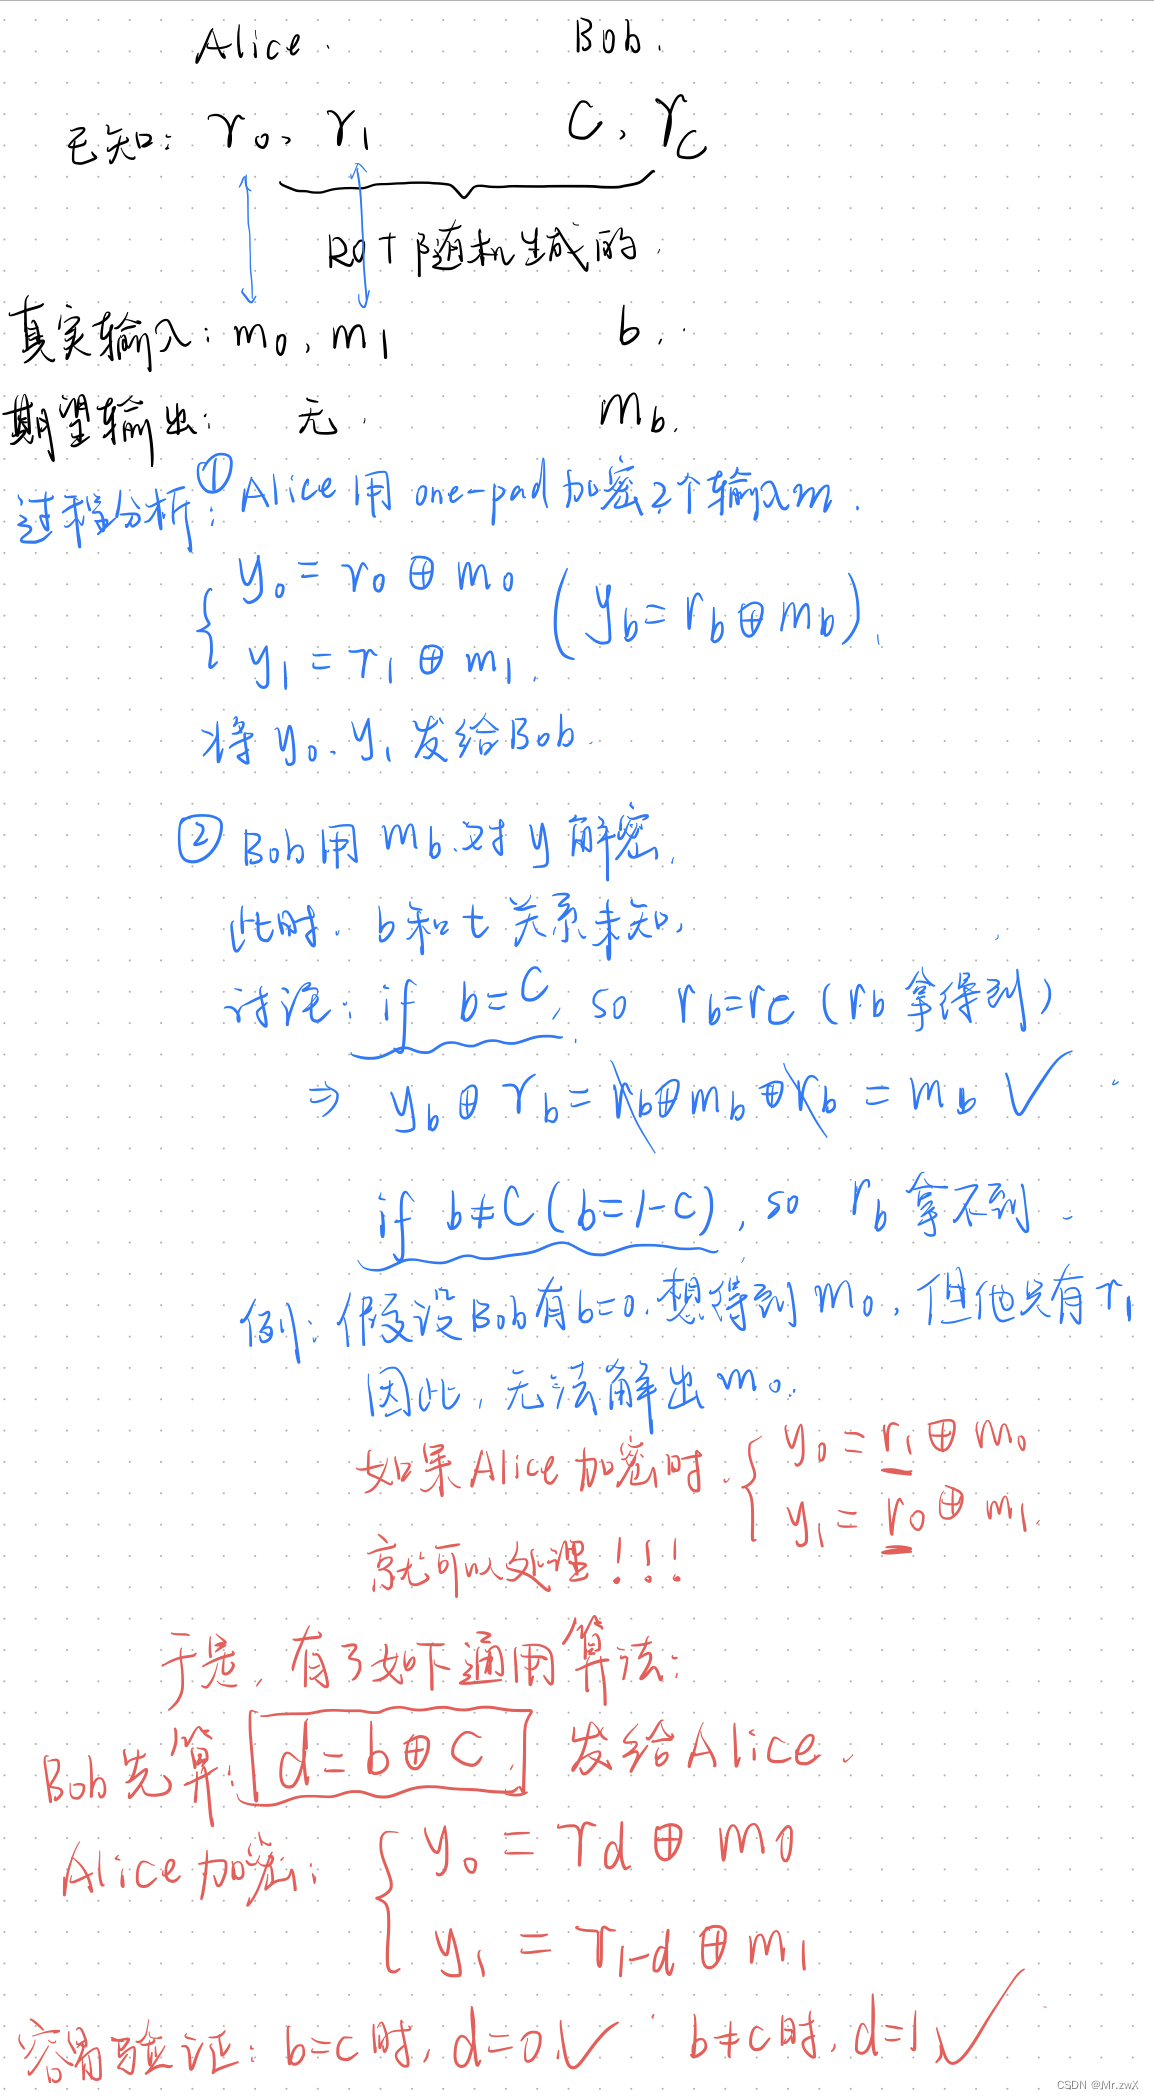 Alice. Bob.
已知: r₀、r₁ C, r_C
ROT随机生成的.
真实输入: m₀, m₁ b.
期望输出: 无. m_b.
过程分析: ① Alice用 one-pad 加密2个输入m.
{ y₀ = r₀ ⊕ m₀
y₁ = r₁ ⊕ m₁. (y_b = r_b ⊕ m_b).
将 y₀、y₁ 发给Bob.
② Bob用 m_b 对 y 解密.
此时. b和t关系未知,
讨论: if b=C, so r_b=r_C (r_b 拿得到)
⇒ y_b ⊕ r_b = r_b ⊕ m_b ⊕ r_b = m_b ✓
if b≠C (b=1-C), so r_b 拿不到.
例: 假设Bob有b=0. 想得到 m₀, 但他只有 r₁
因此, 无法解出 m₀.
如果Alice加密时. { y₀ = r₁ ⊕ m₀
y₁ = r₀ ⊕ m₁.
就可以处理!!!
于是, 有了如下通用算法:
Bob先算: d = b ⊕ C. 发给Alice.
Alice加密: { y₀ = r_d ⊕ m₀
y₁ = r_{1-d} ⊕ m₁
容易验证: b=c时, d=0 ✓ b≠c时, d=1 ✓
CSDN @Mr.zwX